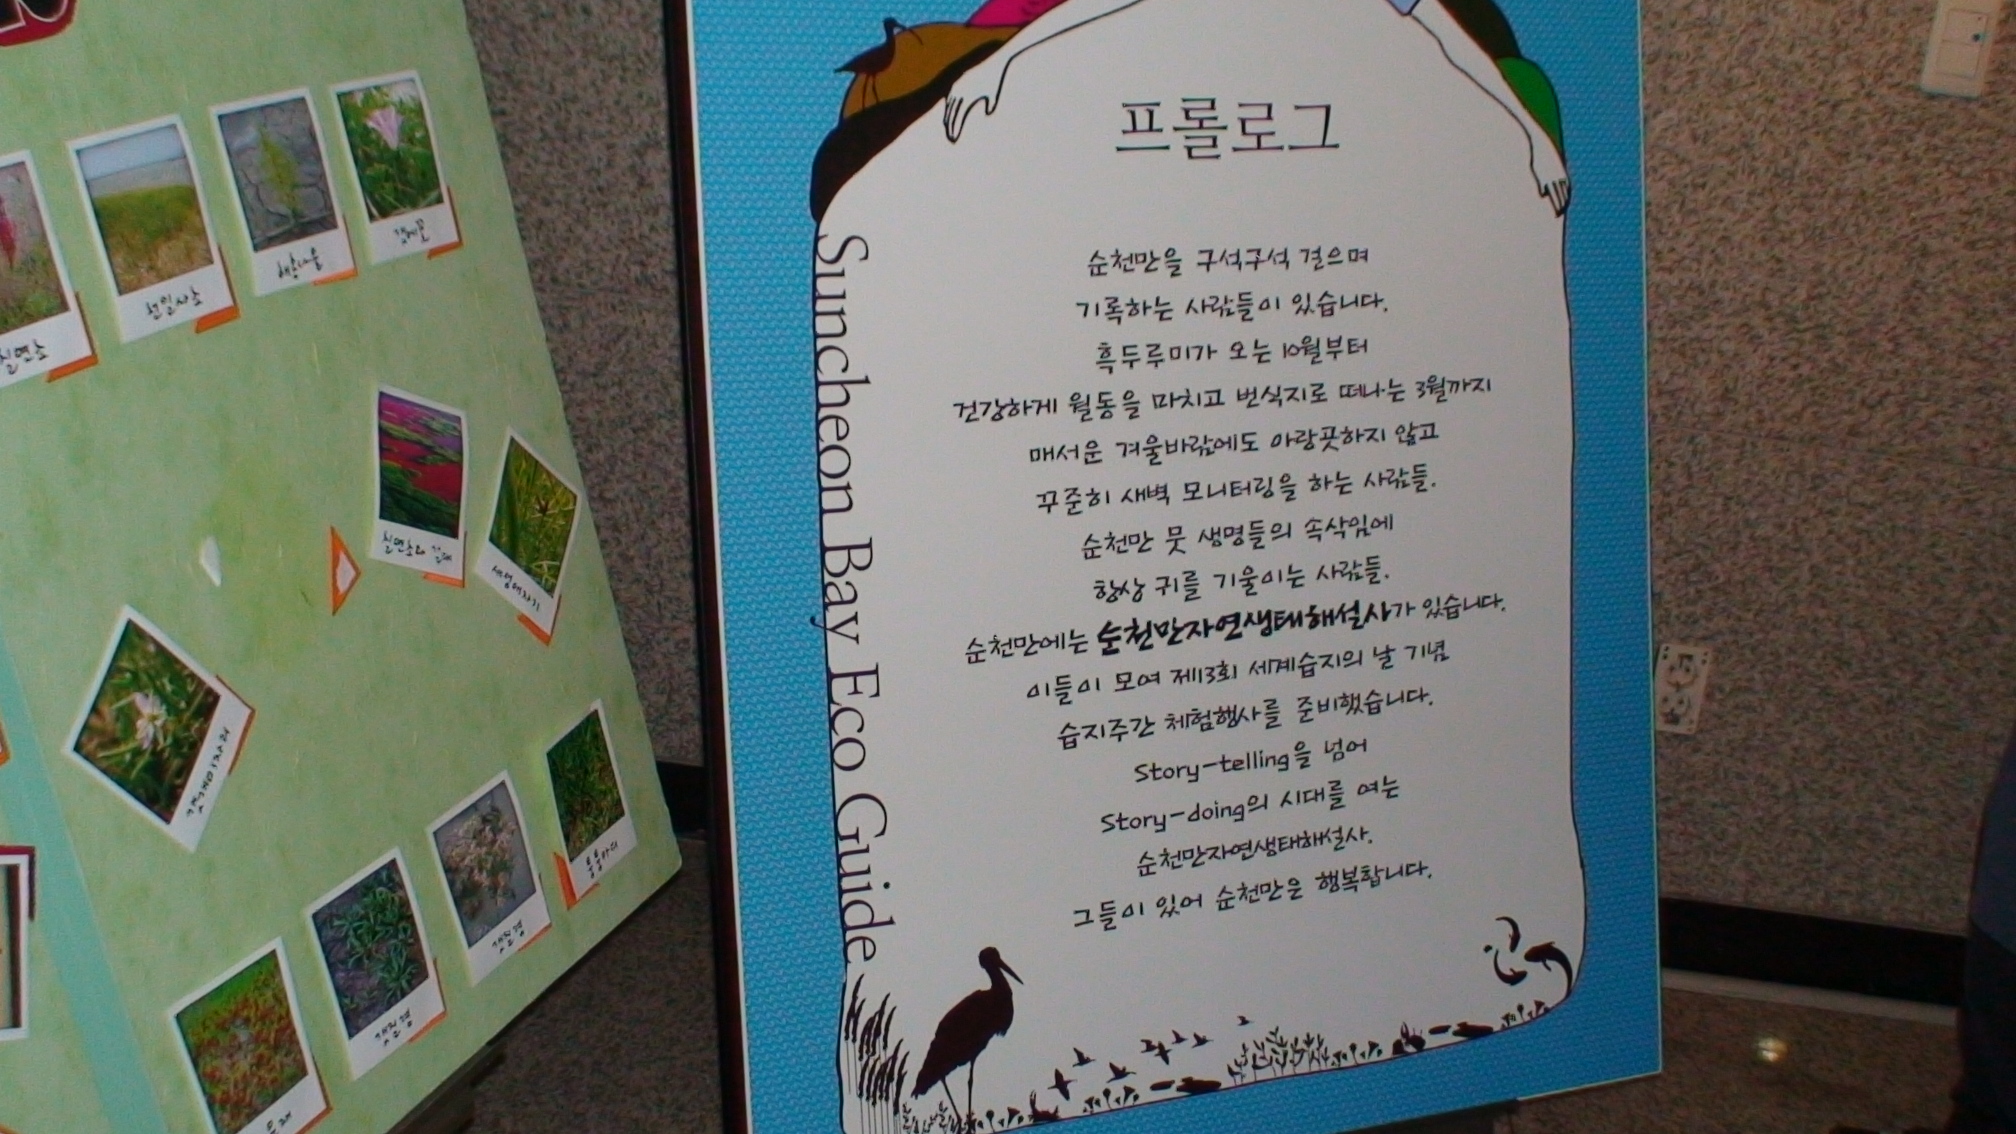 칠면초
천일사초
해홍나물
갯메꽃
칠면초와 갈대
세섬매자기
갯질경
갯질경
통통마디
프롤로그
순천만을 구석구석 걸으며
기록하는 사람들이 있습니다.
흑두루미가 오는 10월부터
건강하게 월동을 마치고 번식지로 떠나는 3월까지
매서운 겨울바람에도 아랑곳하지 않고
꾸준히 새벽 모니터링을 하는 사람들.
순천만 뭇 생명들의 속삭임에
항상 귀를 기울이는 사람들.
순천만에는 순천만자연생태해설사가 있습니다.
이들이 모여 제13회 세계습지의 날 기념
습지주간 체험행사를 준비했습니다.
Story-telling을 넘어
Story-doing의 시대를 여는
순천만자연생태해설사.
그들이 있어 순천만은 행복합니다.
Suncheon Bay Eco Guide